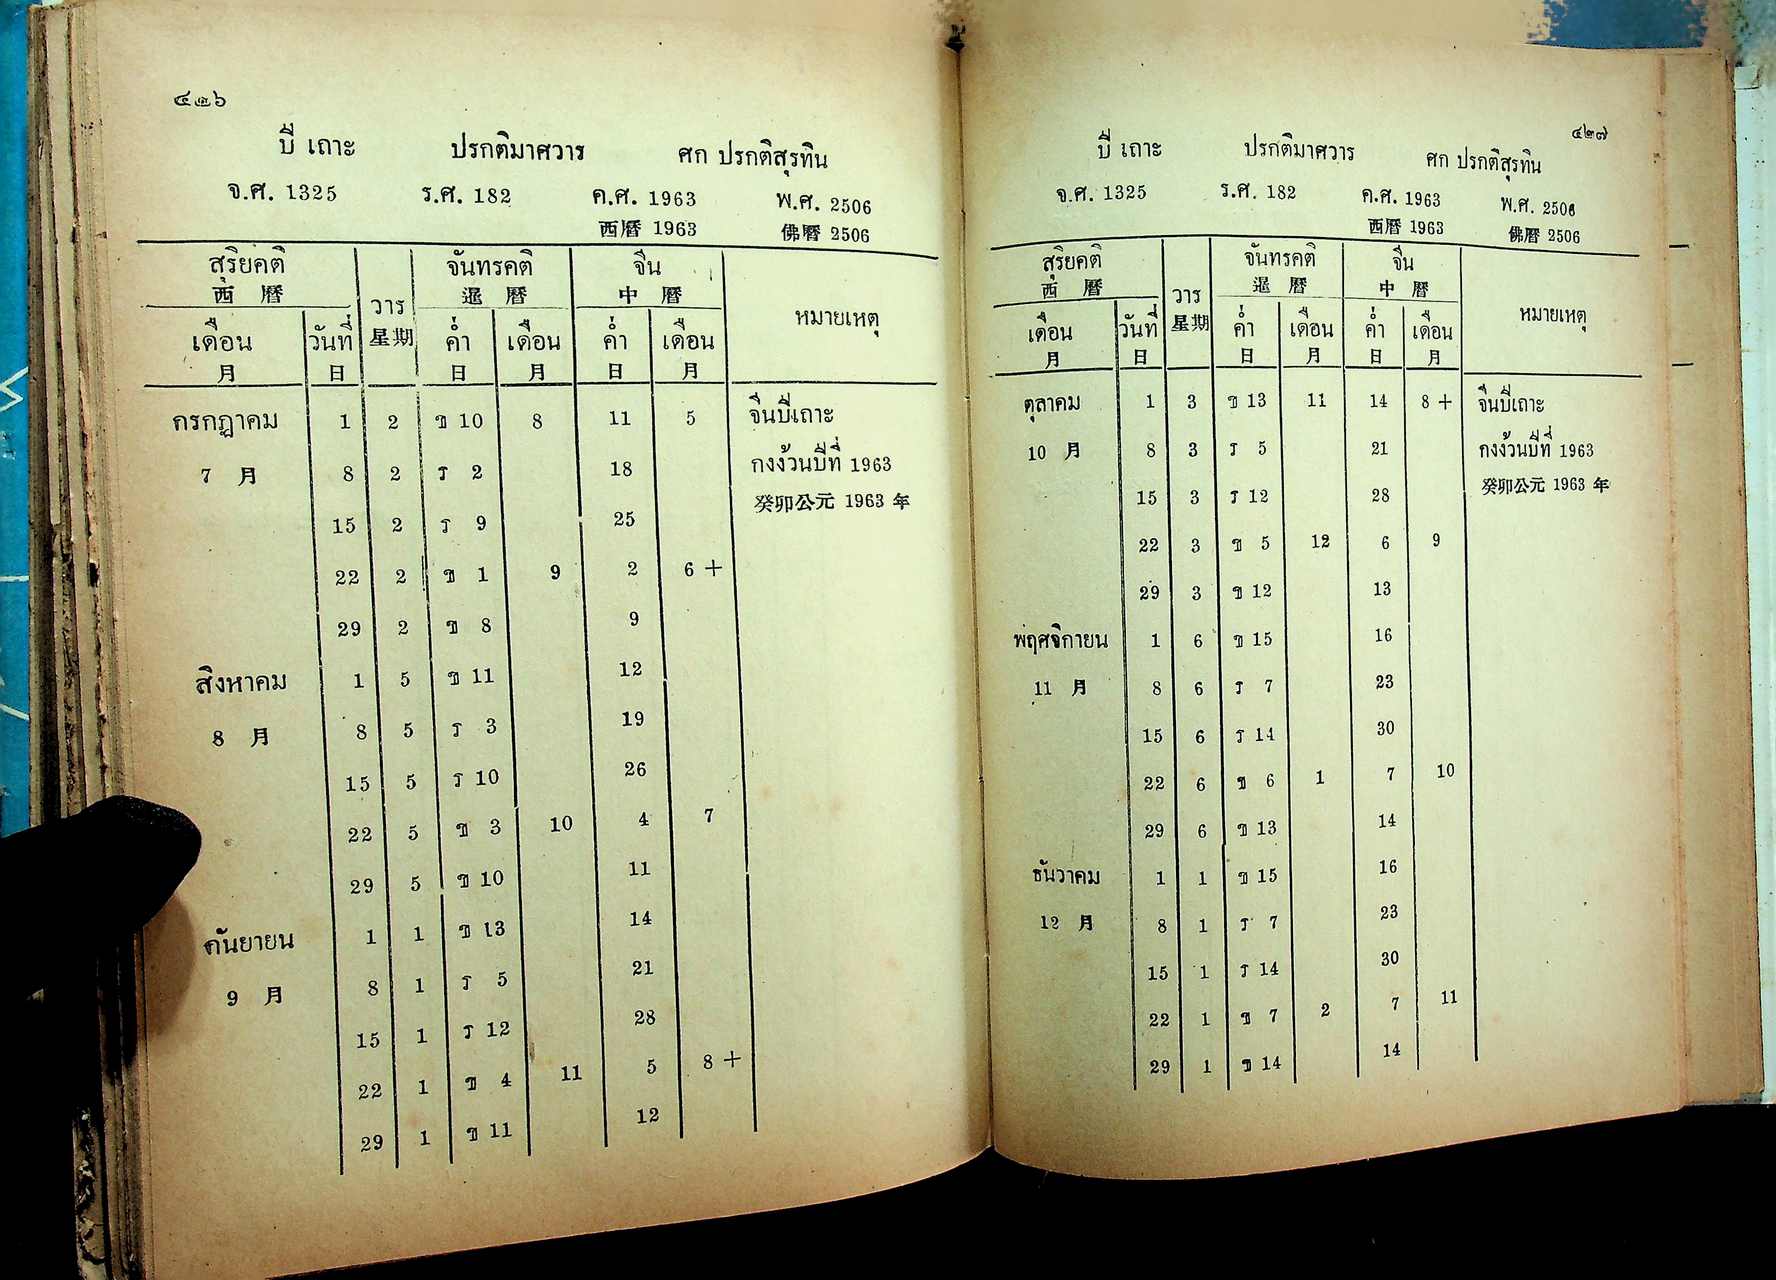 ๔๒๖
ปี เถาะ ปรกติมาศวาร ศก ปรกติสุรทิน
จ.ศ. 1325 ร.ศ. 182 ค.ศ. 1963 พ.ศ. 2506
西曆 1963 佛曆 2506
สุริยคติ วาร จันทรคติ จีน หมายเหตุ
西曆 星期 暹曆 中曆
เดือน วันที่ ค่ำ เดือน ค่ำ เดือน
月 日 日 月 日 月
กรกฎาคม 1 2 ข 10 8 11 5 จีนปีเถาะ
7 月 8 2 ร 2 18 กงง้วนปีที่ 1963
15 2 ร 9 25 癸卯公元 1963 年
22 2 ข 1 9 2 6 +
29 2 ข 8 9
สิงหาคม 1 5 ข 11 12
8 月 8 5 ร 3 19
15 5 ร 10 26
22 5 ข 3 10 4 7
29 5 ข 10 11
กันยายน 1 1 ข 13 14
9 月 8 1 ร 5 21
15 1 ร 12 28
22 1 ข 4 11 5 8 +
29 1 ข 11 12
๔๒๗
ปี เถาะ ปรกติมาศวาร ศก ปรกติสุรทิน
จ.ศ. 1325 ร.ศ. 182 ค.ศ. 1963 พ.ศ. 2506
西曆 1963 佛曆 2506
สุริยคติ วาร จันทรคติ จีน หมายเหตุ
西曆 星期 暹曆 中曆
เดือน วันที่ ค่ำ เดือน ค่ำ เดือน
月 日 日 月 日 月
ตุลาคม 1 3 ข 13 11 14 8 + จีนปีเถาะ
10 月 8 3 ร 5 21 กงง้วนปีที่ 1963
15 3 ร 12 28 癸卯公元 1963 年
22 3 ข 5 12 6 9
29 3 ข 12 13
พฤศจิกายน 1 6 ข 15 16
11 月 8 6 ร 7 23
15 6 ร 14 30
22 6 ข 6 1 7 10
29 6 ข 13 14
ธันวาคม 1 1 ข 15 16
12 月 8 1 ร 7 23
15 1 ร 14 30
22 1 ข 7 2 7 11
29 1 ข 14 14